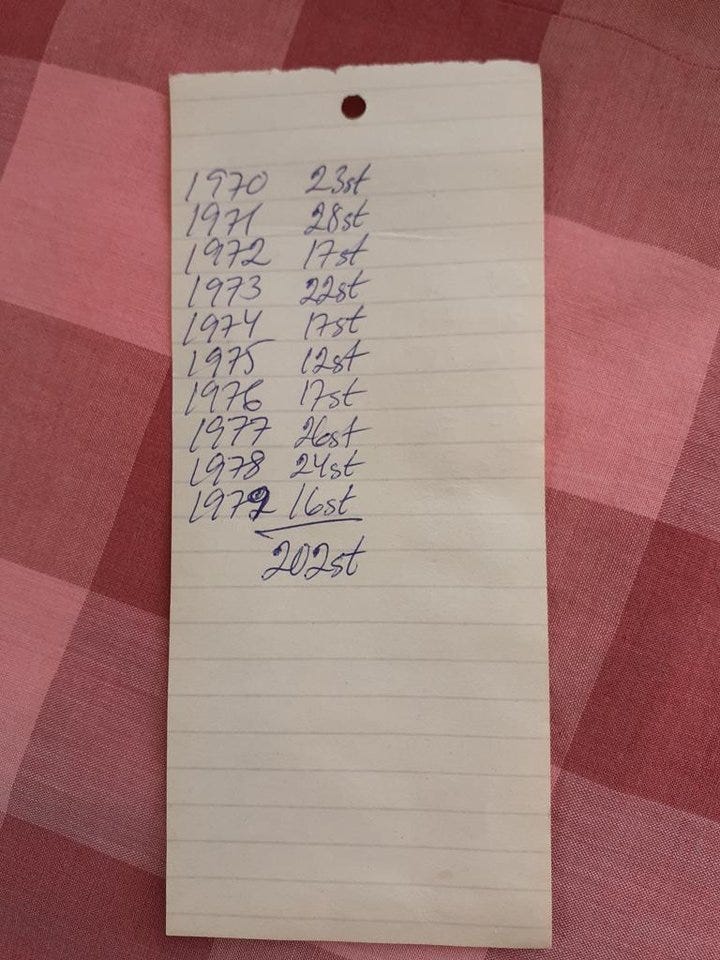 1970 23st
1971 28st
1972 17st
1973 22st
1974 17st
1975 12st
1976 17st
1977 26st
1978 24st
1979 16st
202st